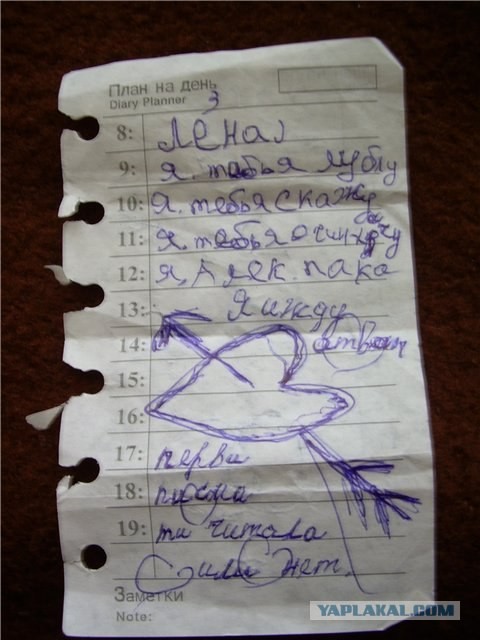 План на день
Diary Planner
3
8: Лена)
9: я. тебья лублу
10: Я. тебья скажу
11: я. тебья очин
12: я, Алек. пака
13: Я и жду
14: ответ
15:
16:
17: перви
18: писма
19: ти читала
или нет.
Заметки
Note:
YAPLAKAL.COM